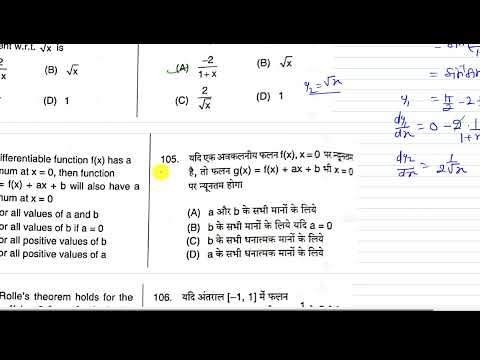 ent w.r.t. √x is
(B) √x
(D) 1
(A) -2/1+x
(B) √x
(C) 2/√x
(D) 1
y₂ = √x
y₁ = π/2 - 2
dy₁/dx = 0 - 2·1/1+x
dy₂/dx = 1/2√x
ifferentiable function f(x) has a
num at x = 0, then function
= f(x) + ax + b will also have a
num at x = 0
or all values of a and b
or all values of b if a = 0
or all positive values of b
or all positive values of a
105. यदि एक अवकलनीय फलन f(x), x = 0 पर न्यूनतम
है, तो फलन g(x) = f(x) + ax + b भी x = 0
पर न्यूनतम होगा
(A) a और b के सभी मानों के लिये
(B) b के सभी मानों के लिये यदि a = 0
(C) b के सभी धनात्मक मानों के लिये
(D) a के सभी धनात्मक मानों के लिये
Rolle's theorem holds for the
106. यदि अंतराल [–1, 1] में फलन